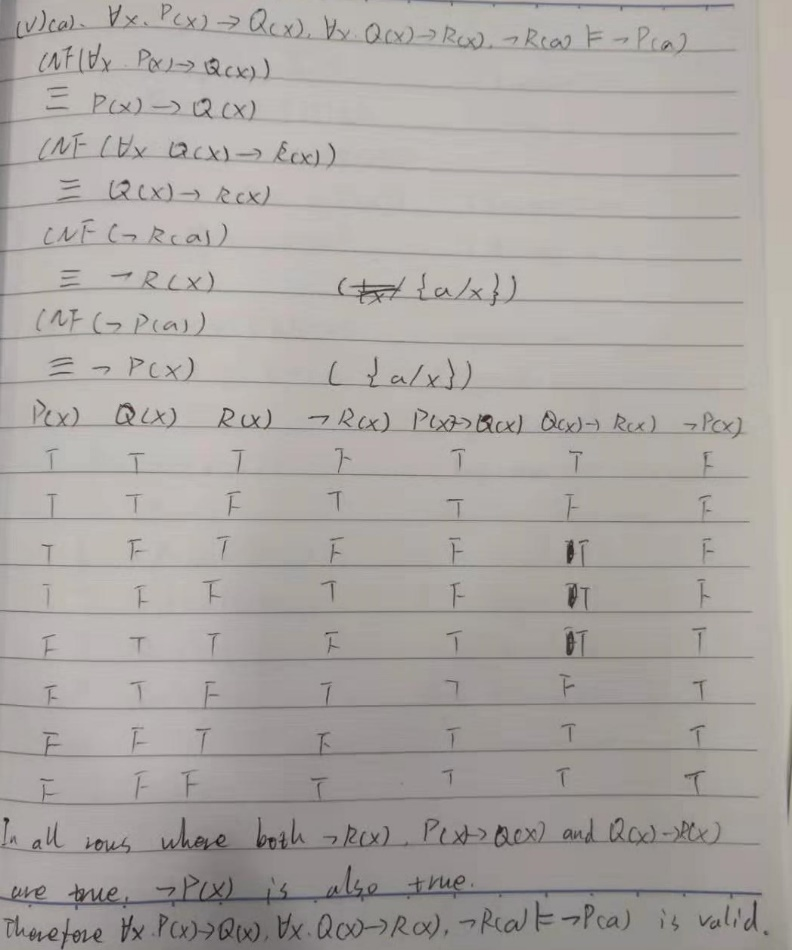 (v)(a). ∀x. P(x) → Q(x), ∀x. Q(x) → R(x), ¬R(a) ⊨ ¬P(a)
CNF(∀x P(x) → Q(x))
≡ P(x) → Q(x)
CNF (∀x Q(x) → R(x))
≡ Q(x) → R(x)
CNF (¬R(a))
≡ ¬R(x) ({a/x})
CNF (¬P(a))
≡ ¬P(x) ({a/x})
P(x) Q(x) R(x) ¬R(x) P(x)→Q(x) Q(x)→R(x) ¬P(x)
T T T F T T F
T T F T T F F
T F T F F T F
T F F T F T F
F T T F T T T
F T F T T F T
F F T F T T T
F F F T T T T
In all rows where both ¬R(x), P(x)→Q(x) and Q(x)→R(x)
are true, ¬P(x) is also true.
Therefore ∀x.P(x)→Q(x), ∀x.Q(x)→R(x), ¬R(a) ⊨ ¬P(a) is valid.